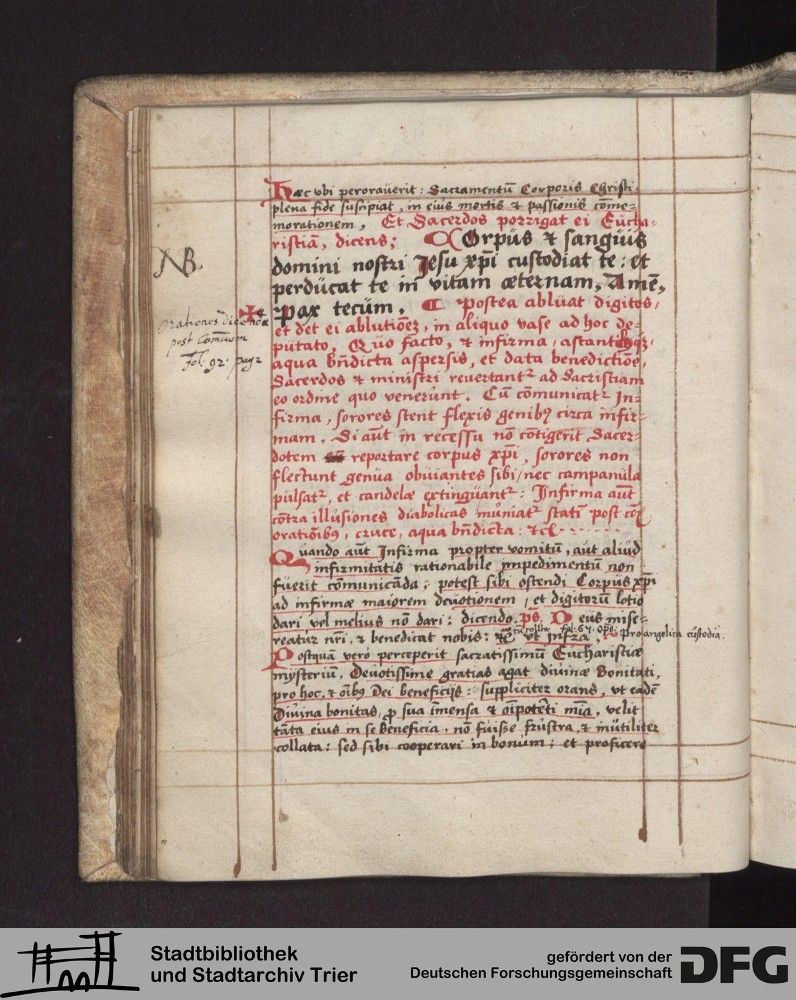 Hæc vbi perorauerit: Sacramentū Corporis Christi
plena fide suscipiat, in eiùs mortis & passionis cōme-
morationem, Et Sacerdos porrigat ei Eùcha-
ristiā, dicens; COrpùs & sangùis
domini nostri Jesu xp̄i custodiat te: et
perdùcat te in vitam æternam, Amē,
Pax tecùm. ¶ Postea ablùat digitos,
et det ei ablutionē, in aliquo vase ad hoc de-
pùtato, Qùo facto, & infirma, astantibùsq;
aqua bn̄dicta aspersis, et data benedictiōe,
Sacerdos & ministri reuertantr ad Sacristiam
eo ordine quo venerùnt. Cū cōmunicatr In-
firma, sorores stent flexis genibꝰ circa infir-
mam. Si aūt in recessu nō cōtigerit Sacer-
dotem reportare corpus xp̄i, sorores non
flectunt genùa obùiantes sibi, nec campanùla
pùlsatr, et candelæ extingùantr: Infirma aūt
cōtra illùsiones diabolicas mùniatr statī post cō
orationibꝰ, cruce, aqua bn̄dicta: &c
Quando aūt Infirma propter vomitū, aùt aliùd
infirmitatis rationabile impedimentùm non
fùerit cōmunicāda; potest sibi ostendi Corpùs xp̄i
ad infirmæ maiorem deùotionem, et digitorū lotio
dari vel melius nō dari: dicendo ps. Deùs mise-
reatùr nr̄i, & benedicat nobis: vt infra. Pro angelica cùstodia.
Postquā verò perceperit sacratissimū Eùcharistiæ
mysteriù, Deùotissime gratias agat diùinæ Bonitati,
pro hoc, & oībꝰ Dei beneficijs: sùppliciter orans, vt eadē
Diùina bonitas, p sua īmensa & oīpotēti mīa, velit
tāta eiùs in se beneficia, nō fùisse frùstra, & inùtiliter
collata: sed sibi cooperari in bonùm; et proficere
NB.
Orationes dicendæ
post Comūnem
Fol: 92. pag 2
Stadtbibliothek
und Stadtarchiv Trier
gefördert von der
Deutschen Forschungsgemeinschaft
DFG